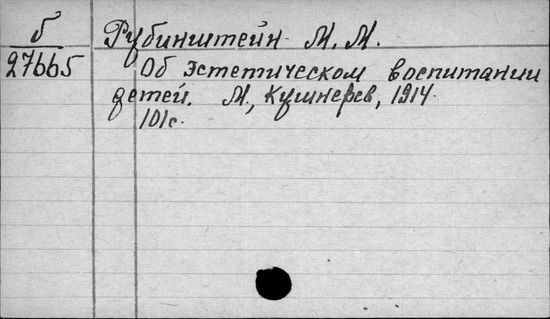 б
27665
Рубинштейн М. М.
Об эстетическом воспитании
детей. М., Кушнерев, 1914.
101с.